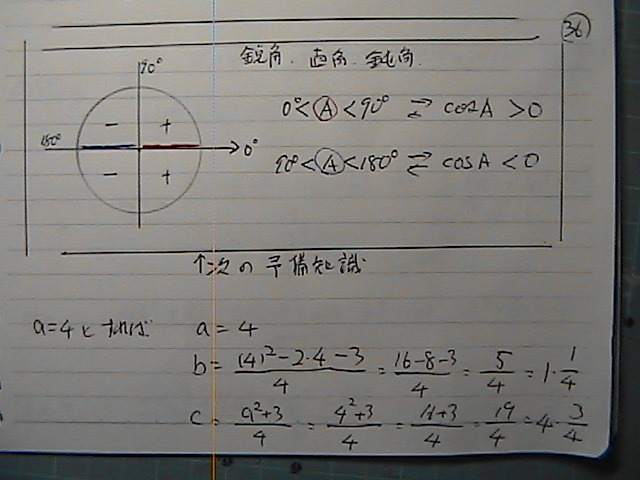 36
鋭角.直角.鈍角.
90°
180°
0°
− +
− +
0°<A<90° ⇄ cosA>0
90°<A<180° ⇄ cosA<0
↑次の予備知識
a=4とすれば a=4
b= (4)²−2・4−3/4 = 16−8−3/4 = 5/4 = 1・1/4
c= a²+3/4 = 4²+3/4 = 16+3/4 = 19/4 = 4・3/4